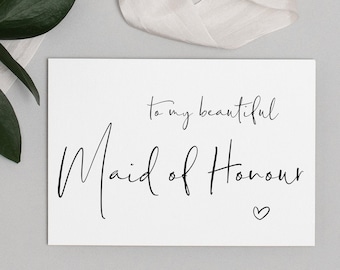 to my beautiful
Maid of Honour